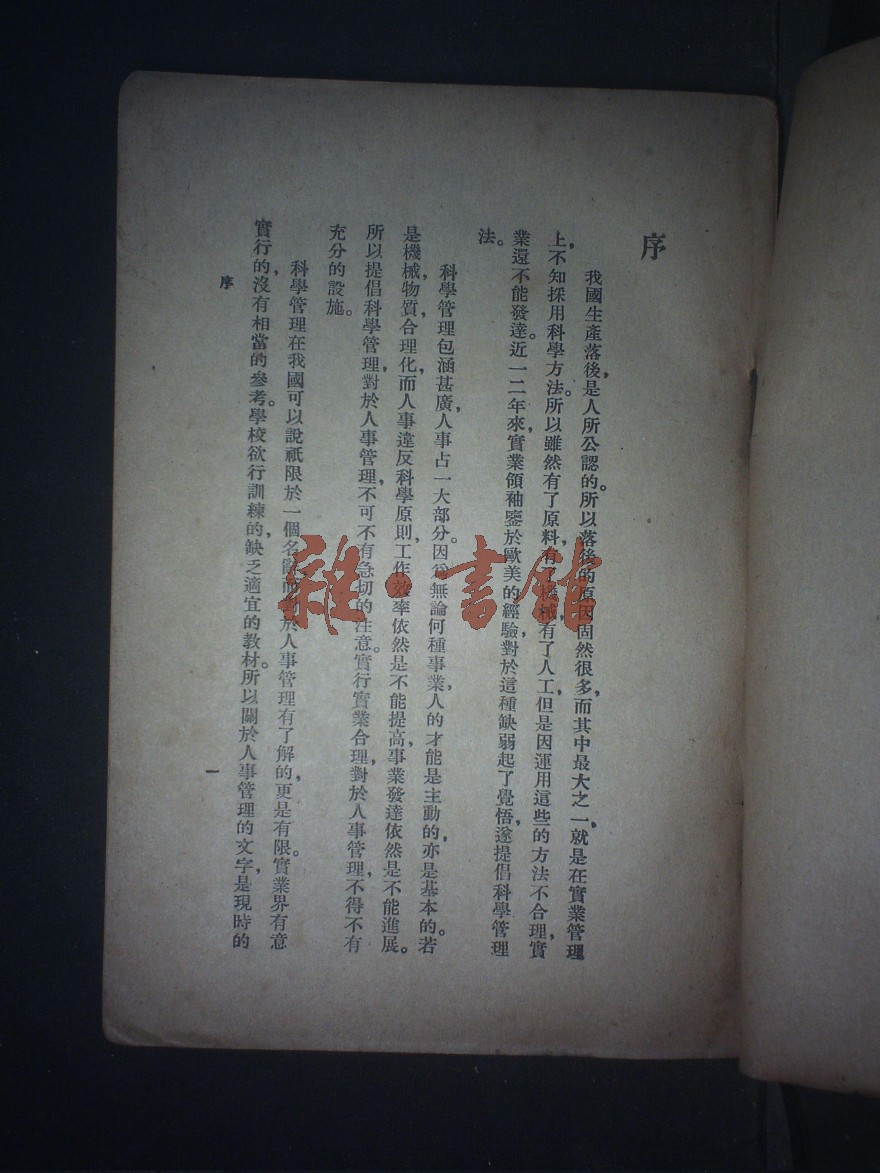 序
我國生產落後，是人所公認的。所以落後的原因固然很多，而其中最大之一，就是在實業管理
上，不知採用科學方法。所以雖然有了原料，有了機械，有了人工，但是因運用這些的方法不合理，實
業還不能發達。近一二年來，實業領袖鑒於歐美的經驗，對於這種缺弱起了覺悟，遂提倡科學管理
法。
科學管理包涵甚廣，人事占一大部分。因爲無論何種事業，人的才能是主動的，亦是基本的。若
是機械，物質，合理化，而人事違反科學原則，工作效率依然是不能提高，事業發達依然是不能進展。
所以提倡科學管理，對於人事管理，不可不有急切的注意。實行實業合理，對於人事管理，不得不有
充分的設施。
科學管理在我國可以說祇限於一個名辭，而對於人事管理有了解的，更是有限。實業界有意
實行的，沒有相當的參考。學校欲行訓練的，缺乏適宜的教材。所以關於人事管理的文字，是現時的
序
一
雜·書館